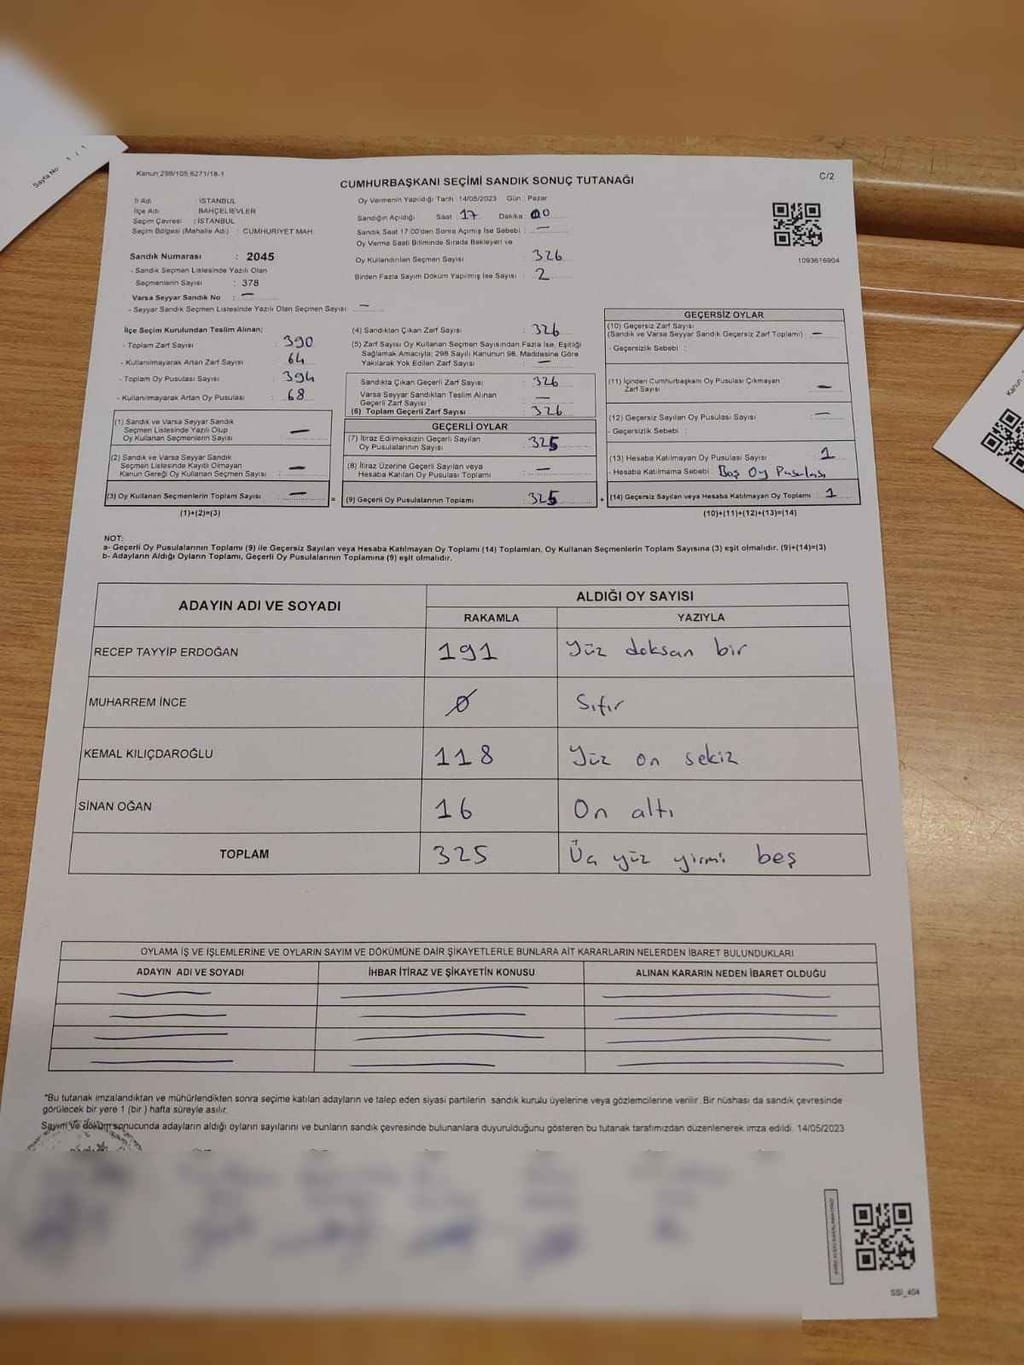 Sayfa No : 1 / 1
Kanun:298/105,6271/18-1
C/2
CUMHURBAŞKANI SEÇİMİ SANDIK SONUÇ TUTANAĞI
İl Adı : İSTANBUL
İlçe Adı : BAHÇELİEVLER
Seçim Çevresi : İSTANBUL
Seçim Bölgesi (Mahalle Adı) : CUMHURİYET MAH.
Sandık Numarası : 2045
- Sandık Seçmen Listesinde Yazılı Olan
Seçmenlerin Sayısı : 378
Varsa Seyyar Sandık No : —
- Seyyar Sandık Seçmen Listesinde Yazılı Olan Seçmen Sayısı : —
Oy Vermenin Yapıldığı Tarih :14/05/2023 Gün : Pazar
Sandığın Açıldığı Saat 17 Dakika 00
Sandık Saat 17:00'den Sonra Açılmış İse Sebebi : —
Oy Verme Saati Bitiminde Sırada Bekleyen ve
Oy Kullandırılan Seçmen Sayısı 326
Birden Fazla Sayım Döküm Yapılmış İse Sayısı : 2
1093616904
İlçe Seçim Kurulundan Teslim Alınan;
- Toplam Zarf Sayısı : 390
- Kullanılmayarak Artan Zarf Sayısı : 64
- Toplam Oy Pusulası Sayısı : 394
- Kullanılmayarak Artan Oy Pusulası : 68
(1) Sandık ve Varsa Seyyar Sandık
Seçmen Listesinde Yazılı Olup
Oy Kullanan Seçmenlerin Sayısı : —
(2) Sandık ve Varsa Seyyar Sandık
Seçmen Listesinde Kayıtlı Olmayan
Kanun Gereği Oy Kullanan Seçmen Sayısı : —
(3) Oy Kullanan Seçmenlerin Toplam Sayısı : —
(1)+(2)=(3)
(4) Sandıktan Çıkan Zarf Sayısı : 326
(5) Zarf Sayısı Oy Kullanan Seçmen Sayısından Fazla İse, Eşitliği
Sağlamak Amacıyla; 298 Sayılı Kanunun 98. Maddesine Göre
Yakılarak Yok Edilen Zarf Sayısı : —
Sandıkta Çıkan Geçerli Zarf Sayısı : 326
Varsa Seyyar Sandıktan Teslim Alınan
Geçerli Zarf Sayısı : —
(6) Toplam Geçerli Zarf Sayısı : 326
GEÇERLİ OYLAR
(7) İtiraz Edilmeksizin Geçerli Sayılan
Oy Pusulalarının Sayısı : 325
(8) İtiraz Üzerine Geçerli Sayılan veya
Hesaba Katılan Oy Pusulası Toplamı : —
= (9) Geçerli Oy Pusulalarının Toplamı : 325
GEÇERSİZ OYLAR
(10) Geçersiz Zarf Sayısı
(Sandık ve Varsa Seyyar Sandık Geçersiz Zarf Toplamı) : —
- Geçersizlik Sebebi :
(11) İçinden Cumhurbaşkanı Oy Pusulası Çıkmayan
Zarf Sayısı : —
(12) Geçersiz Sayılan Oy Pusulası Sayısı : —
- Geçersizlik Sebebi :
(13) Hesaba Katılmayan Oy Pusulası Sayısı : 1
- Hesaba Katılmama Sebebi : Boş Oy Pusulası
+ (14) Geçersiz Sayılan veya Hesaba Katılmayan Oy Toplamı : 1
(10)+(11)+(12)+(13)=(14)
NOT:
a- Geçerli Oy Pusulalarının Toplamı (9) ile Geçersiz Sayılan veya Hesaba Katılmayan Oy Toplamı (14) Toplamları, Oy Kullanan Seçmenlerin Toplam Sayısına (3) eşit olmalıdır. (9)+(14)=(3)
b- Adayların Aldığı Oyların Toplamı, Geçerli Oy Pusulalarının Toplamına (9) eşit olmalıdır.
ADAYIN ADI VE SOYADI
ALDIĞI OY SAYISI
RAKAMLA YAZIYLA
RECEP TAYYİP ERDOĞAN 191 Yüz doksan bir
MUHARREM İNCE 0 Sıfır
KEMAL KILIÇDAROĞLU 118 Yüz on sekiz
SİNAN OĞAN 16 On altı
TOPLAM 325 Üç yüz yirmi beş
OYLAMA İŞ VE İŞLEMLERİNE VE OYLARIN SAYIM VE DÖKÜMÜNE DAİR ŞİKAYETLERLE BUNLARA AİT KARARLARIN NELERDEN İBARET BULUNDUKLARI
ADAYIN ADI VE SOYADI İHBAR İTİRAZ VE ŞİKAYETİN KONUSU ALINAN KARARIN NEDEN İBARET OLDUĞU
*Bu tutanak imzalandıktan ve mühürlendikten sonra seçime katılan adayların ve talep eden siyasi partilerin sandık kurulu üyelerine veya gözlemcilerine verilir. Bir nüshası da sandık çevresinde
görülecek bir yere 1 (bir ) hafta süreyle asılır.
Sayım ve döküm sonucunda adayların aldığı oyların sayılarını ve bunların sandık çevresinde bulunanlara duyurulduğunu gösteren bu tutanak tarafımızdan düzenlenerek imza edildi. 14/05/2023
SSI_404